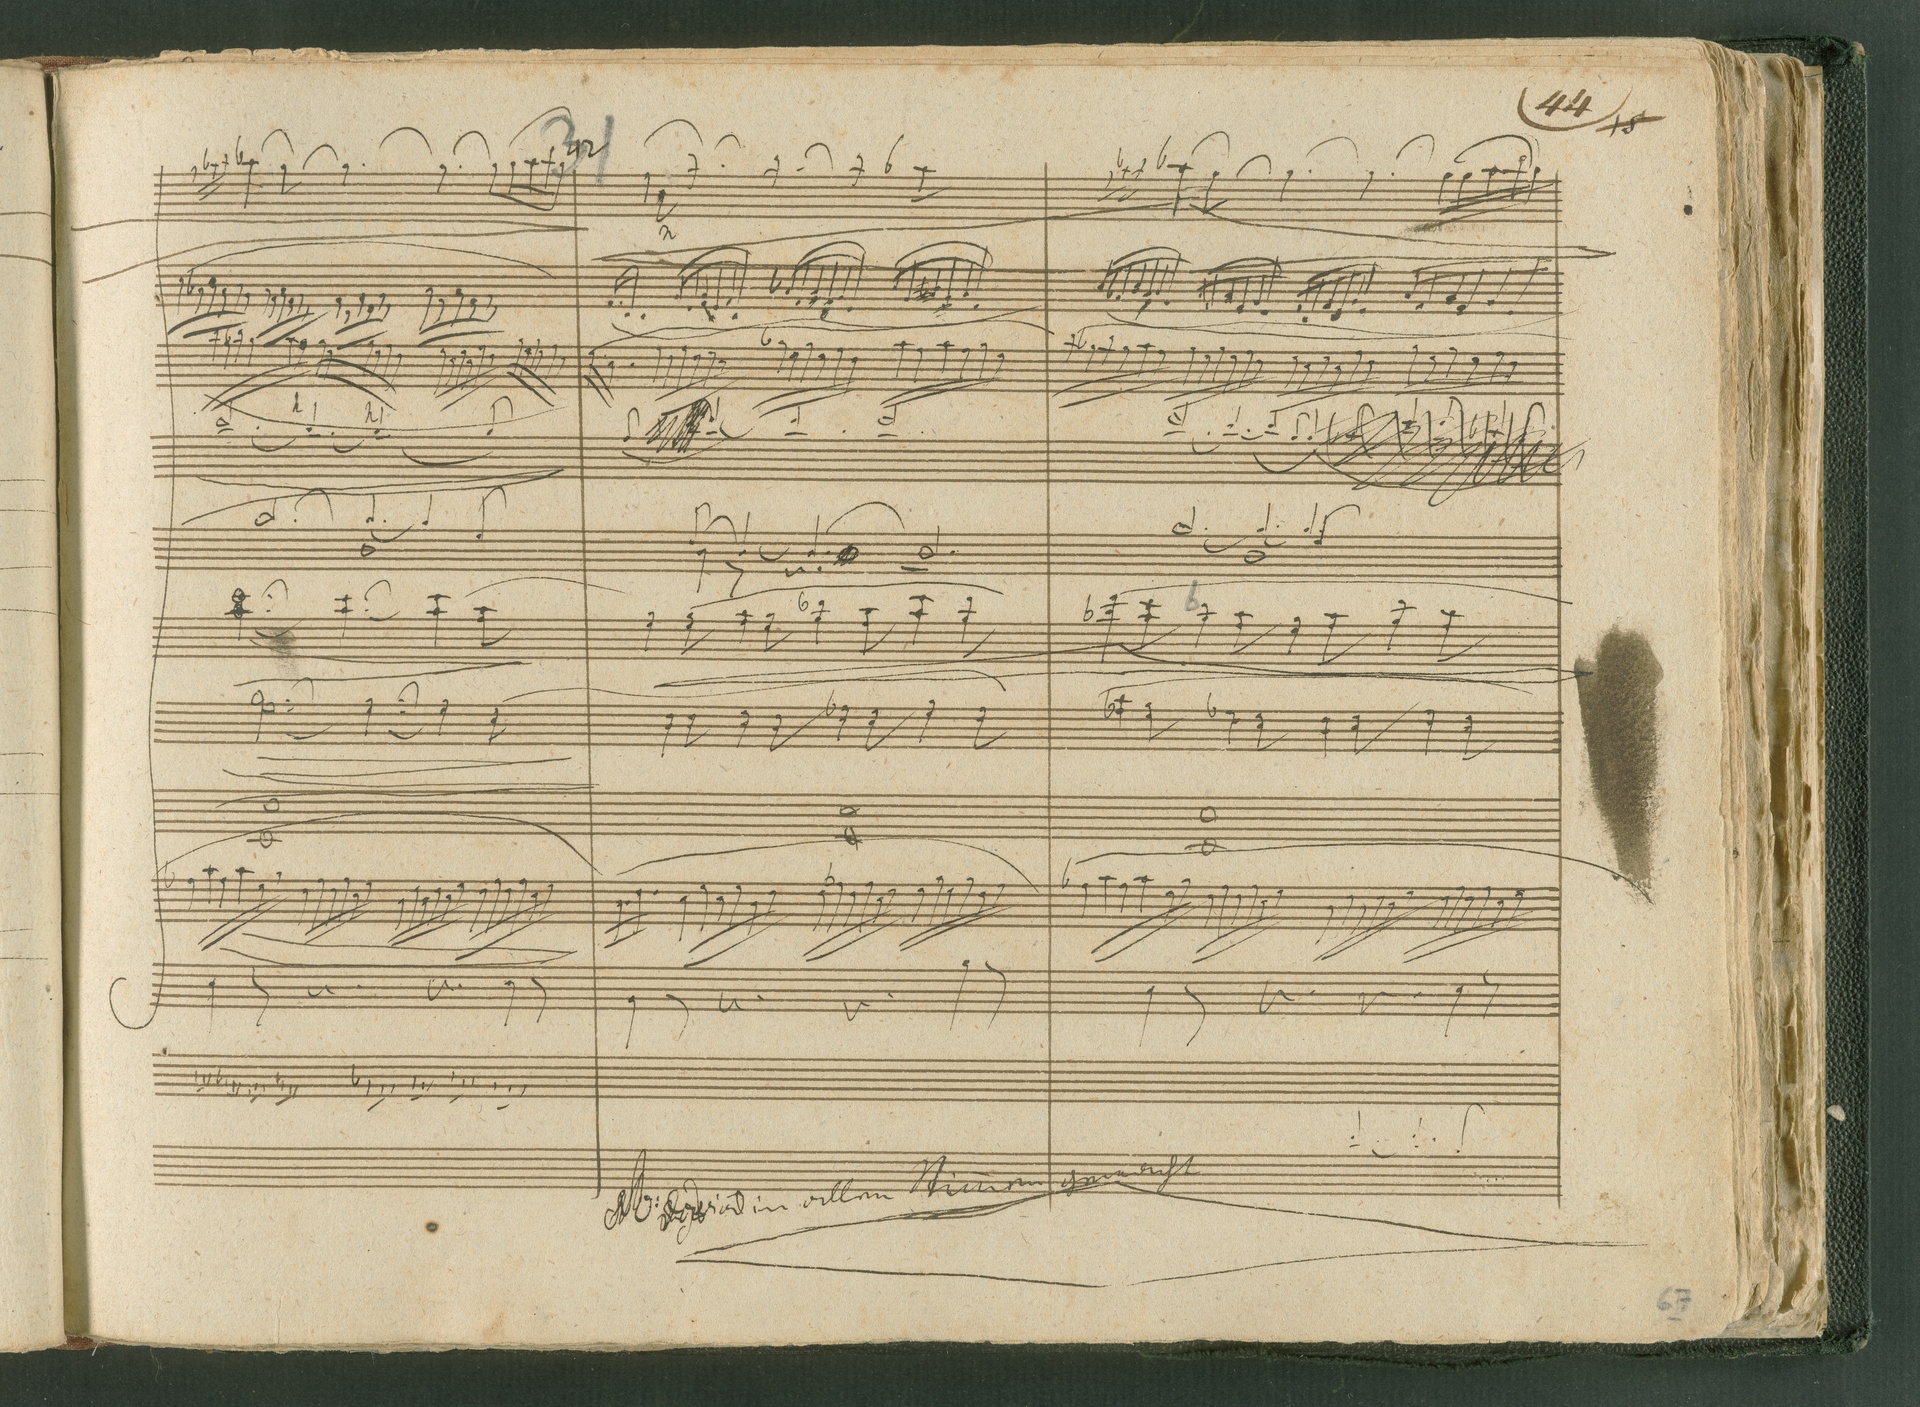 44
15
31
in allen Stimmen gemacht
67